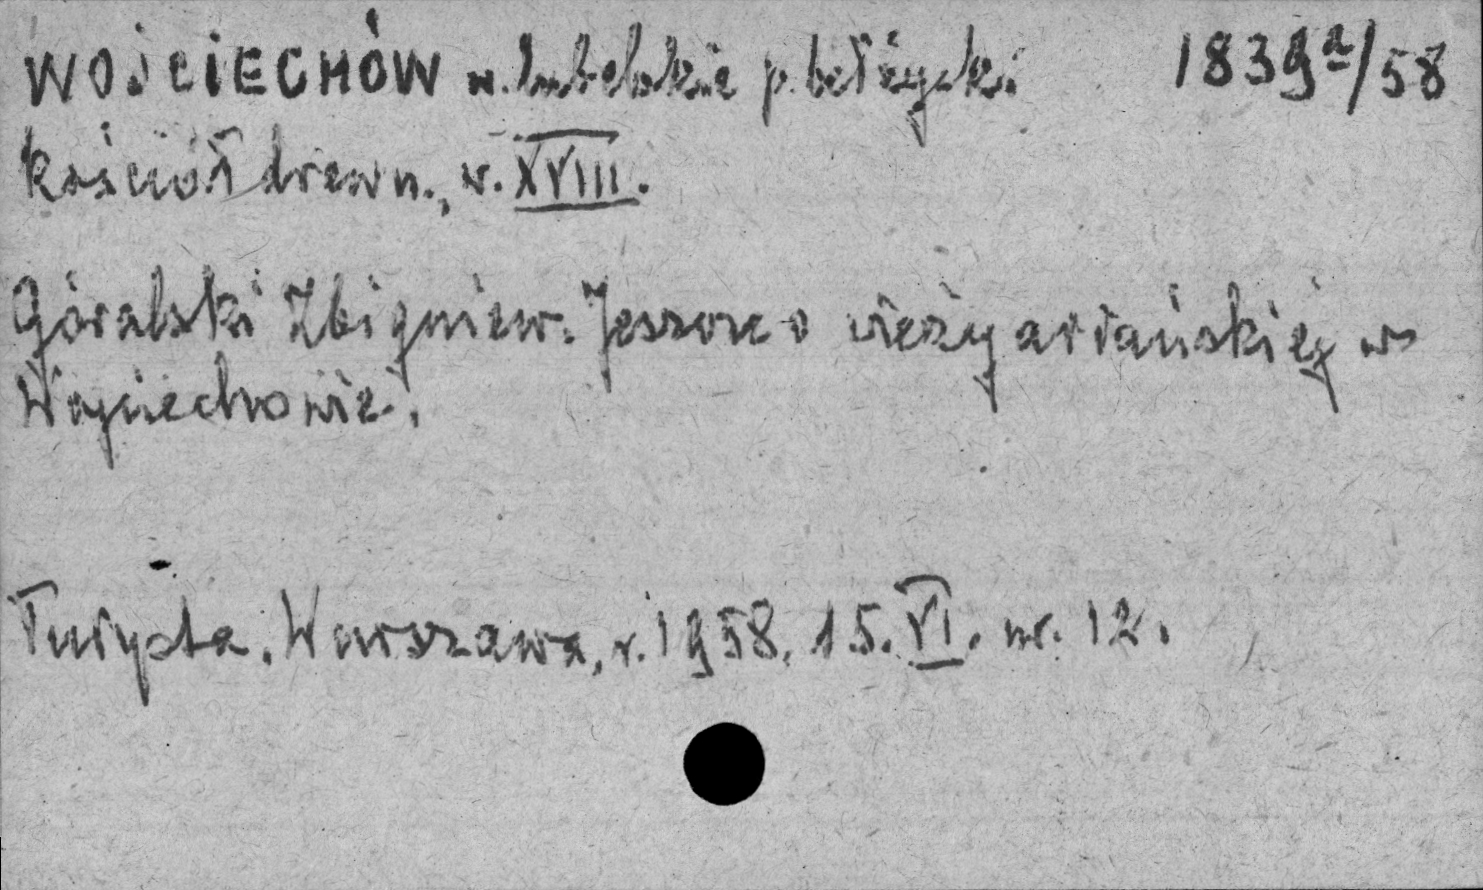 WOJCIECHÓW w. lubelskie p. bełżycki 1839a/58
kościół drewn., w. XVIII.
Góralski Zbigniew. Jeszcze o wieży ariańskiej w
Wojciechowie.
Turysta. Warszawa, r. 1958. 15. VI. nr. 12.